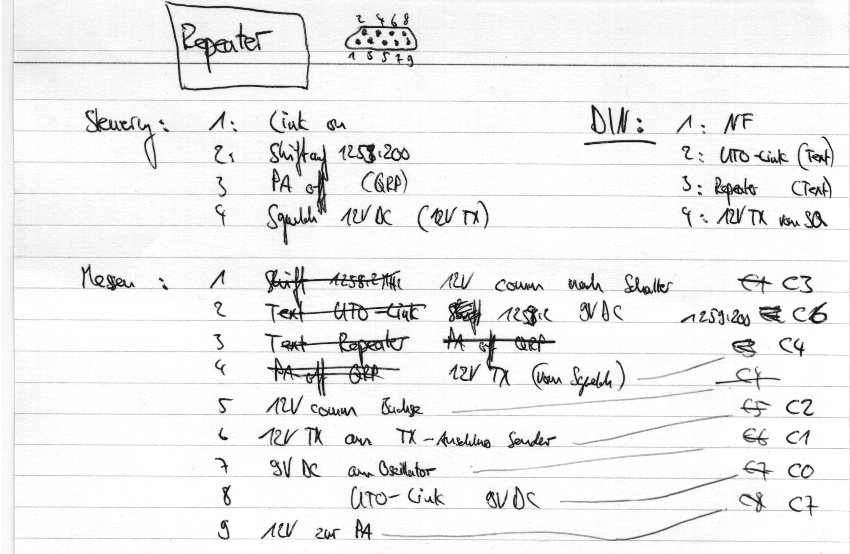 Repeater
2 4 6 8
1 3 5 7 9
Steuerung: 1: Link on
2: Shift auf 1258.200
3 PA off (QRP)
4 Squelch 12V DC (12V TX)
DIN: 1: NF
2: UTO-Link (Text)
3: Repeater (Text)
4: 12V TX von SQ
Messen: 1 Shift 1258.2 MHz 12V comm nach Schalter C1 C3
2 Text UTO-Link 1258.2 9V DC 1259.200 C6
3 Text Repeater PA off QRP C3 C4
4 PA off QRP 12V TX (vom Squelch) C4
5 12V comm Buchse C5 C2
6 12V TX am TX-Anschluss Sender C6 C1
7 9V DC am Oszillator C7 C0
8 UTO-Link 9V DC C8 C7
9 12V zur PA